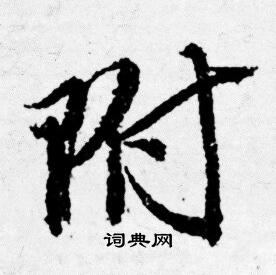 附
词典网